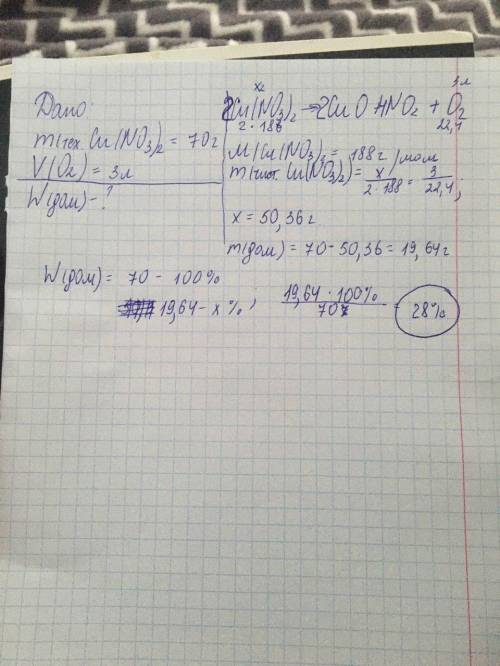 Дано:
m(тех. Cu(NO3)2 = 70г
V(O2) = 3л
W(дом) - ?
xг 3л
2Cu(NO3)2 → 2CuO 4NO2 + O2
2·188 22,4
M(Cu(NO3)2 = 188г/мол
m(чист. Cu(NO3)2) = x/2·188 = 3/22,4;
x = 50,36г
m(дом) = 70 - 50,36 = 19,64г
W(дом) = 70 - 100%
19,64 - x%, 19,64·100%/70 - 28%